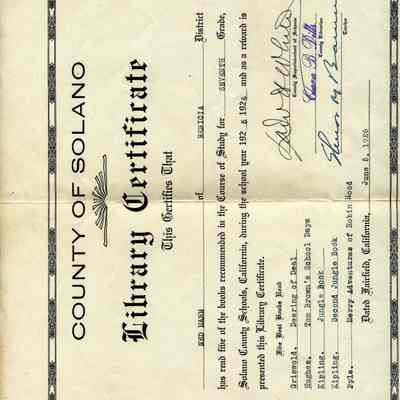 COUNTY OF SOLANO
Library Certificate
This Certifies That
NED HANN of BENICIA District
has read five of the books recommended in the Course of Study for SEVENTH Grade,
Solano County Schools, California, during the school year 192 5 192 6, and as a reward is
presented this Library Certificate.
Five Best Books Read
Griswold. Deering of Deal
Hughes. Tom Brown's School Days
Kipling. Jungle Book
Kipling. Second Jungle Book
Pyle. Merry Adventures of Robin Hood
Dated Fairfield, California, June 5, 1926
Dan H White
County Superintendent of Schools
Clara B. Dills
County Librarian
Teacher